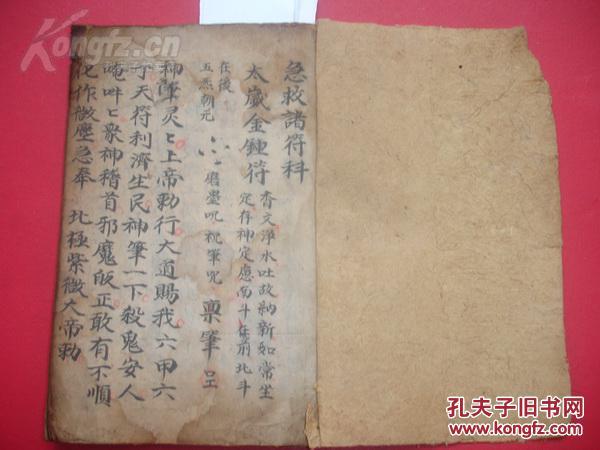 急救諸符科
太歲金鍾符 香文淨水吐故納新如常坐
定存神定應南斗在前北斗
在後
五炁朝元 磨墨咒 祝筆咒 禀筆
神筆灵〻上帝勅行大道賜我六甲六
丁天符利濟生民神筆一下殺鬼安人
唵吽〻眾神稽首邪魔皈正敢有不順
化作微塵急奉 北極紫微大帝勅
Kongfz.com
孔夫子旧书网
www.kongfz.com